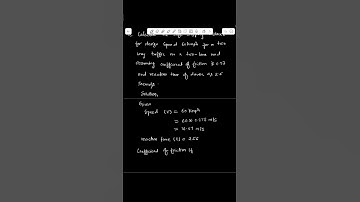 for design speed 60 kmph for a two
way traffic on a two lane and
assuming coefficient of friction is
and reaction time of driver as 2.5
Seconds.
Solution,
Given
Speed (v) = 60 kmph
= 60 x 0.278 m/s
= 16.67 m/s
reaction time (t) = 2.5s
Coefficient of friction